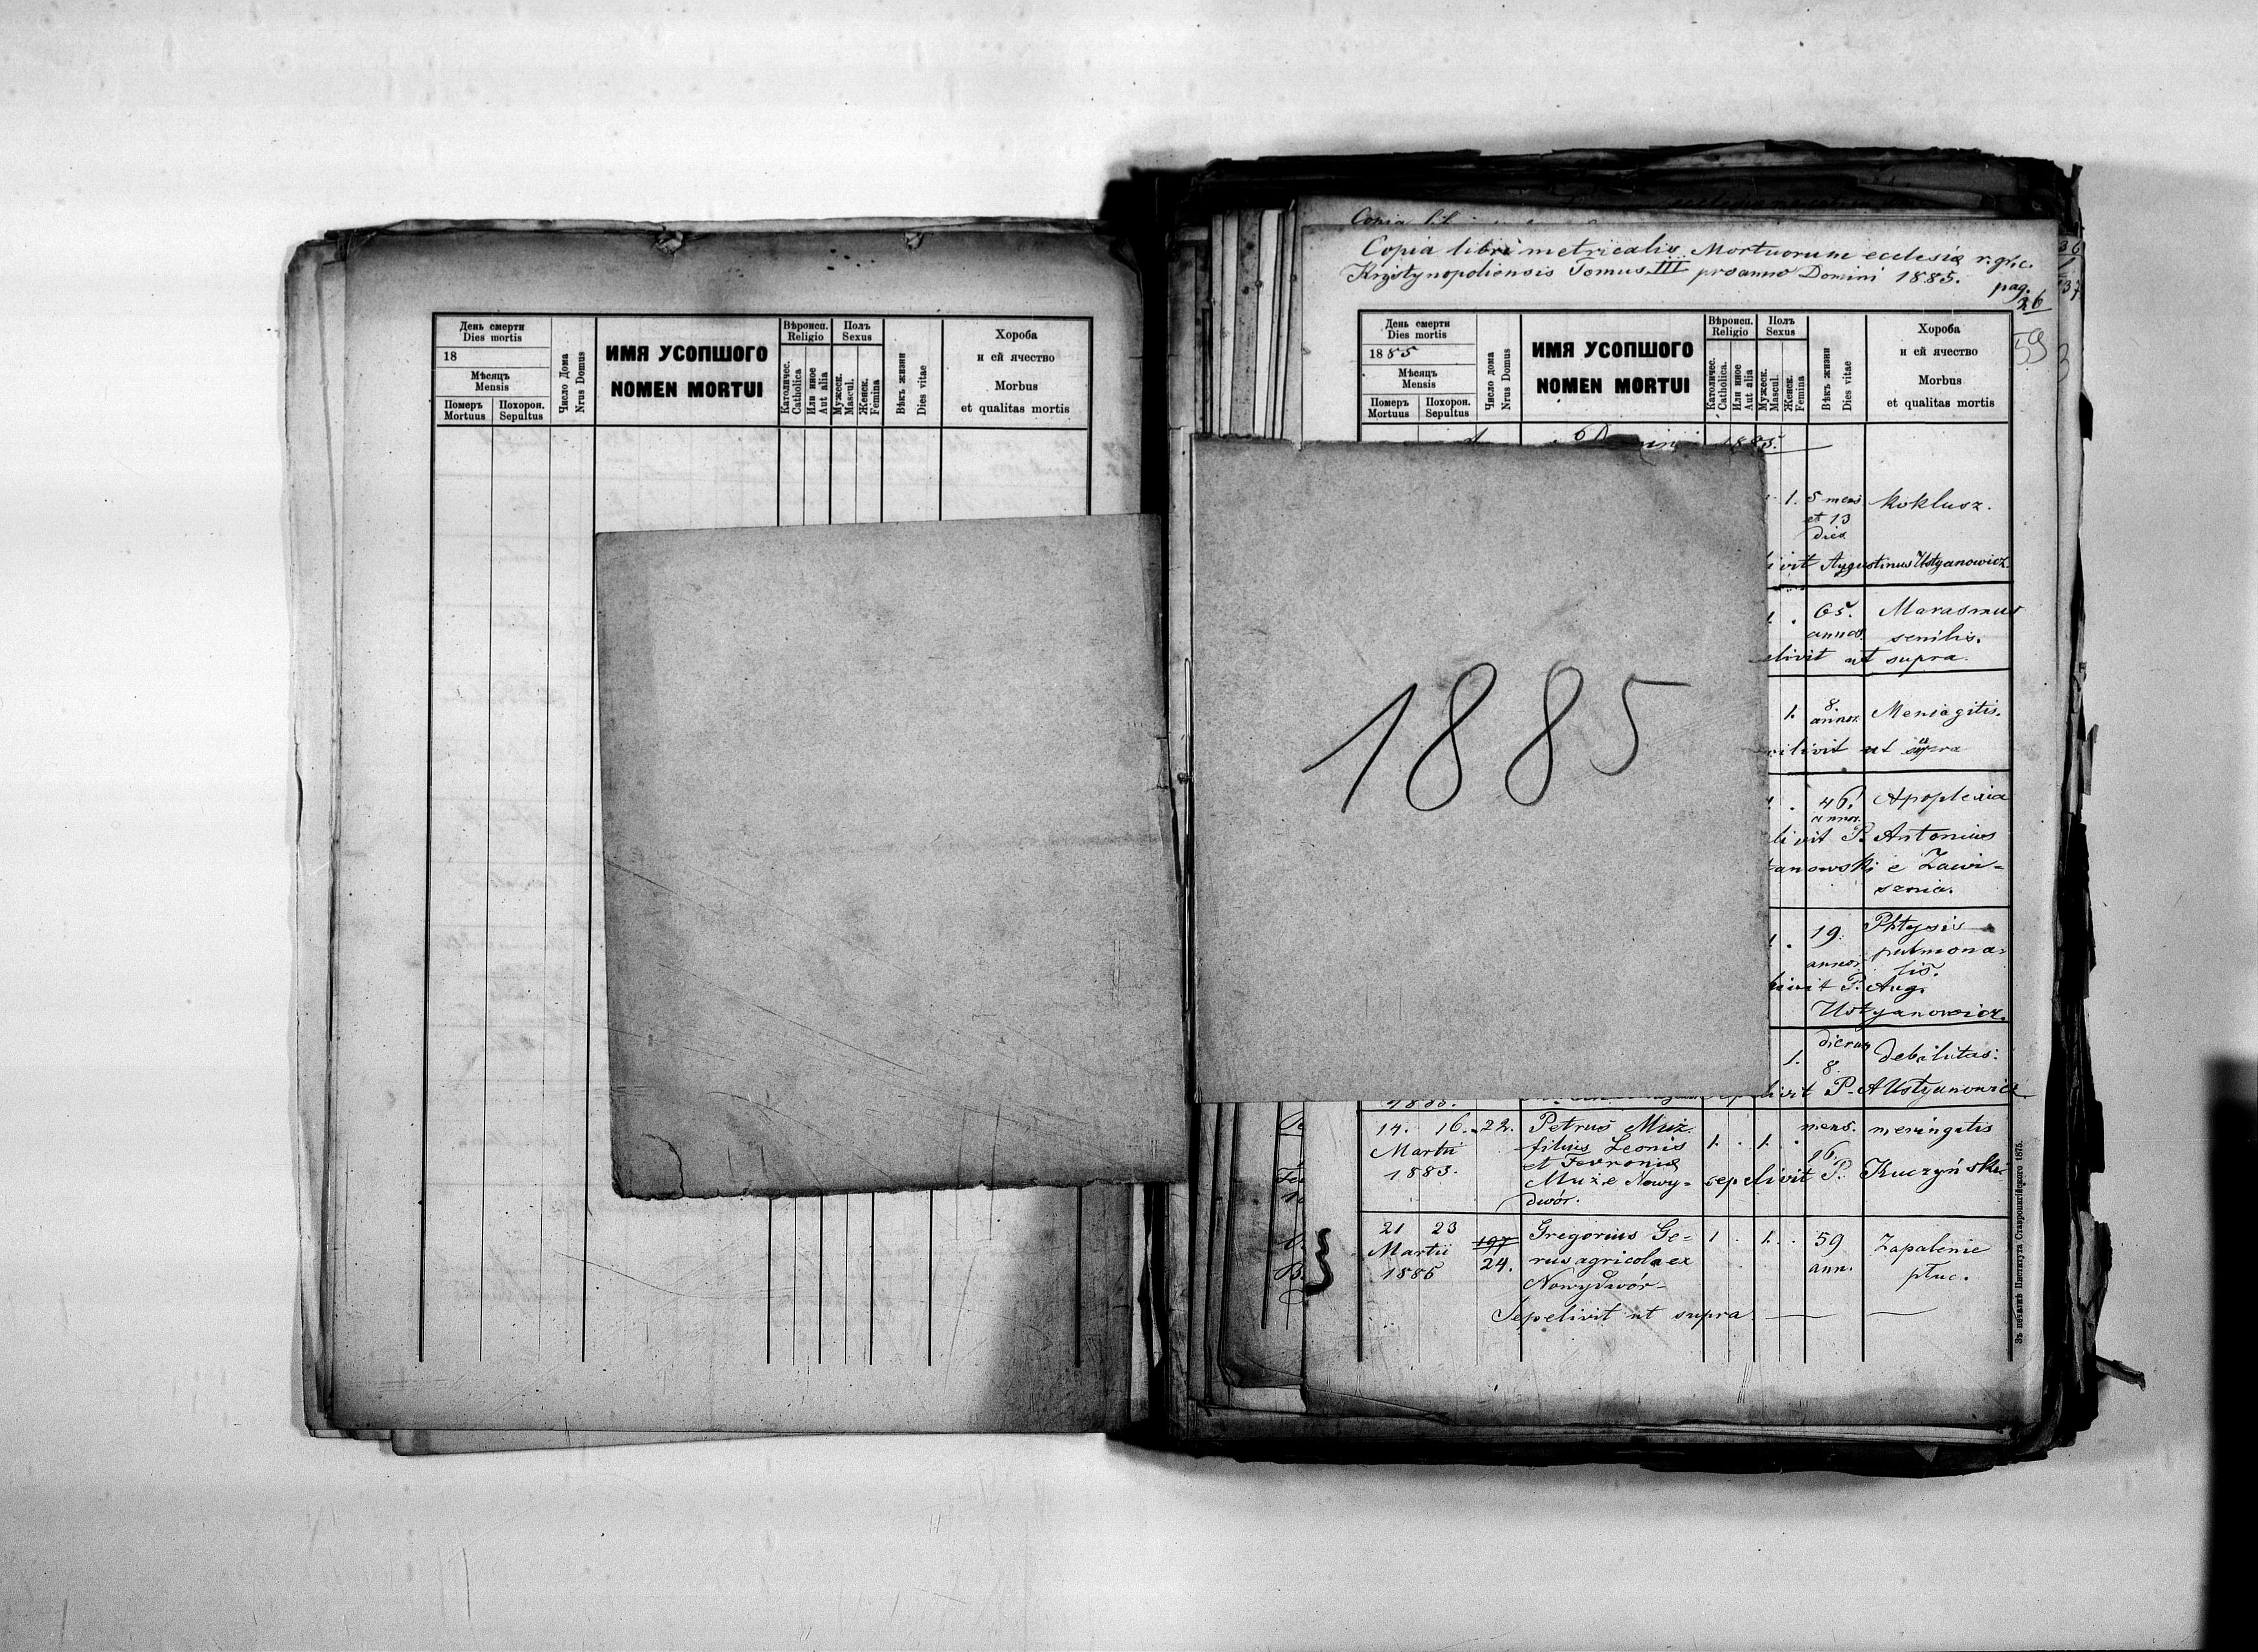 День смерти
Dies mortis
18
Мѣсяцъ
Mensis
Померъ
Mortuus
Похорон.
Sepultus
Число Дома
Nrus Domus
ИМЯ УСОПШОГО
NOMEN MORTUI
Вѣроисп.
Religio
Католичес.
Catholica
Или иное
Aut alia
Полъ
Sexus
Мужеск.
Mascul.
Женск.
Femina
Вѣкъ жизни
Dies vitae
Хороба
и ей ячество
Morbus
et qualitas mortis
Copia libri metricalis Mortuorum ecclesiæ r. gr. c.
Krystynopoliensis Tomus III pro anno Domini 1885.
pag.
26
59
День смерти
Dies mortis
1885
Мѣсяцъ
Mensis
Померъ
Mortuus
Похорон.
Sepultus
Число дома
Nrus Domus
ИМЯ УСОПШОГО
NOMEN MORTUI
Вѣроисп.
Religio
Католичес.
Catholica.
Или иное
Aut alia
Полъ
Sexus
Мужеск.
Mascul.
Женск.
Femina
Вѣкъ жизни
Dies vitae
Хороба
и ей ячество
Morbus
et qualitas mortis
1885.
1. 5 mens koklusz.
et 13
dies
Augustinus Ustyanowicz.
65. Marasmus
annos senilis.
ut supra.
1. 8. Meniagitis.
annor.
ut supra
46. Apoplexia
annor.
P. Antonius
e Zawi-
sznia.
19. Phtysis
annor. pulmona-
lis.
P. Aug.
Ustyanowicz.
1. dierum debilitas.
8.
P. A Ustyanowicz
1885
14. 16. 22. Petrus Muz. 1. . 1. . mens. meningitis
Martii filius Leonis 16.
1883. et Fevroniæ
Muzie Nowy- sepelivit P. Kuczyński
dwór.
21 23 197 Gregorius Ge- 1 . 1. . 59 Zapalenie
Martii 24. rus agricola ex ann. płuc.
1885 Nowydwór-
Sepelivit ut supra
Зъ печатнѣ Института Ставропигійского 1875.